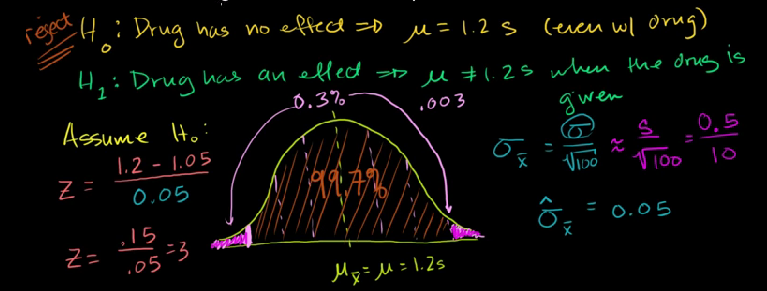 reject H₀: Drug has no effect ⇒ μ = 1.2 s (even w/ drug)
H₁: Drug has an effect ⇒ μ ≠ 1.2 s when the drug is given
0.3% .003
Assume H₀:
z = (1.2 - 1.05) / 0.05
z = .15 / .05 = 3
99.7%
μ_x̄ = μ = 1.2s
σ_x̄ = σ / √100 ≈ s / √100 = 0.5 / 10
σ̂_x̄ = 0.05